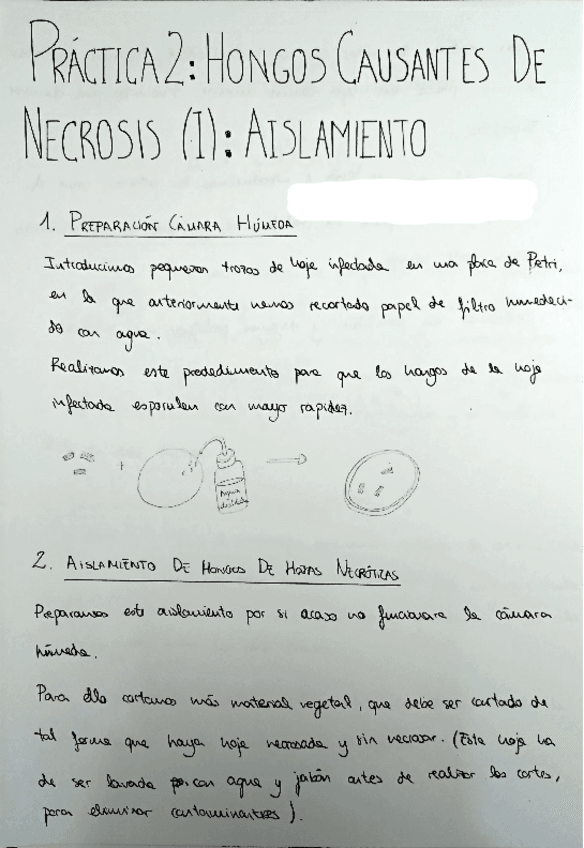 PRÁCTICA 2: HONGOS CAUSANTES DE
NECROSIS (I): AISLAMIENTO
1. PREPARACIÓN CÁMARA HÚMEDA
Introducimos pequeños trozos de hoja infectada en una placa de Petri,
en la que anteriormente hemos recortado papel de filtro humedeci-
do con agua.
Realizamos este prodedimiento para que los hongos de la hoja
infectada esporulen con mayor rapidez.
+
Agua
destilada
2. AISLAMIENTO DE HONGOS DE HOJAS NECRÓTICAS
Preparamos este aislamiento por si acaso no funcionara la cámara
húmeda.
Para ello cortamos más material vegetal, que debe ser cortado de
tal forma que haya hoja necrosada y sin necrosar. (Esta hoja ha
de ser lavada con agua y jabón antes de realizar los cortes,
para eliminar contaminantes).